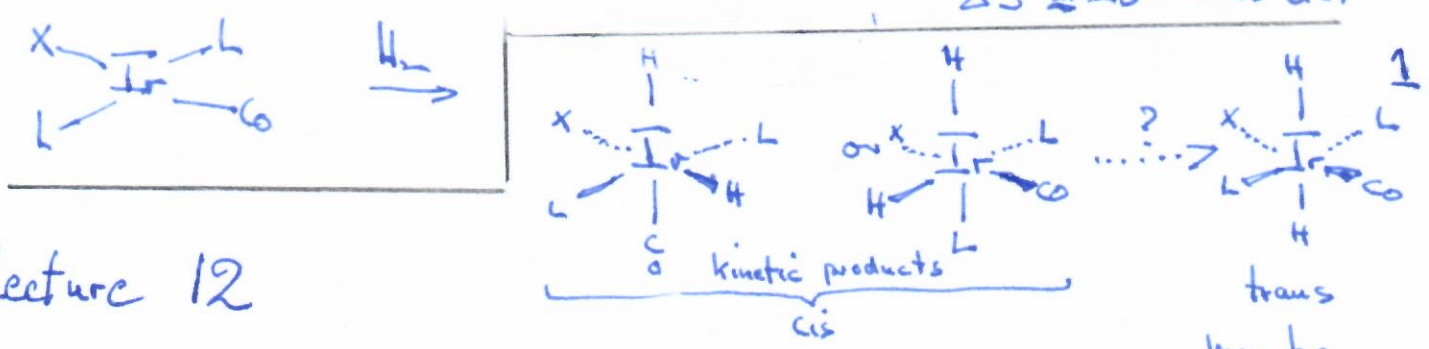 X Ir L L CO
H₂
H X Ir L L H CO
or
H X Ir L H CO L
?
H X Ir L L CO H
1
kinetic products
cis
trans
ecture 12